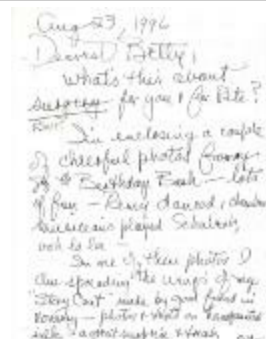 Aug 23, 1996
Dearest Betty,
What's this about
surgery for you & for Pete?
I'm enclosing a couple
of cheerful photos from
my Birthday Bash – lots
of fun – Remy danced, chamber
musicians played Schubert,
ooh la la –
In one of these photos I
am spreading the wings of my
"Story Coat" made by good friend in
– photos & on
silk – a great surprise &